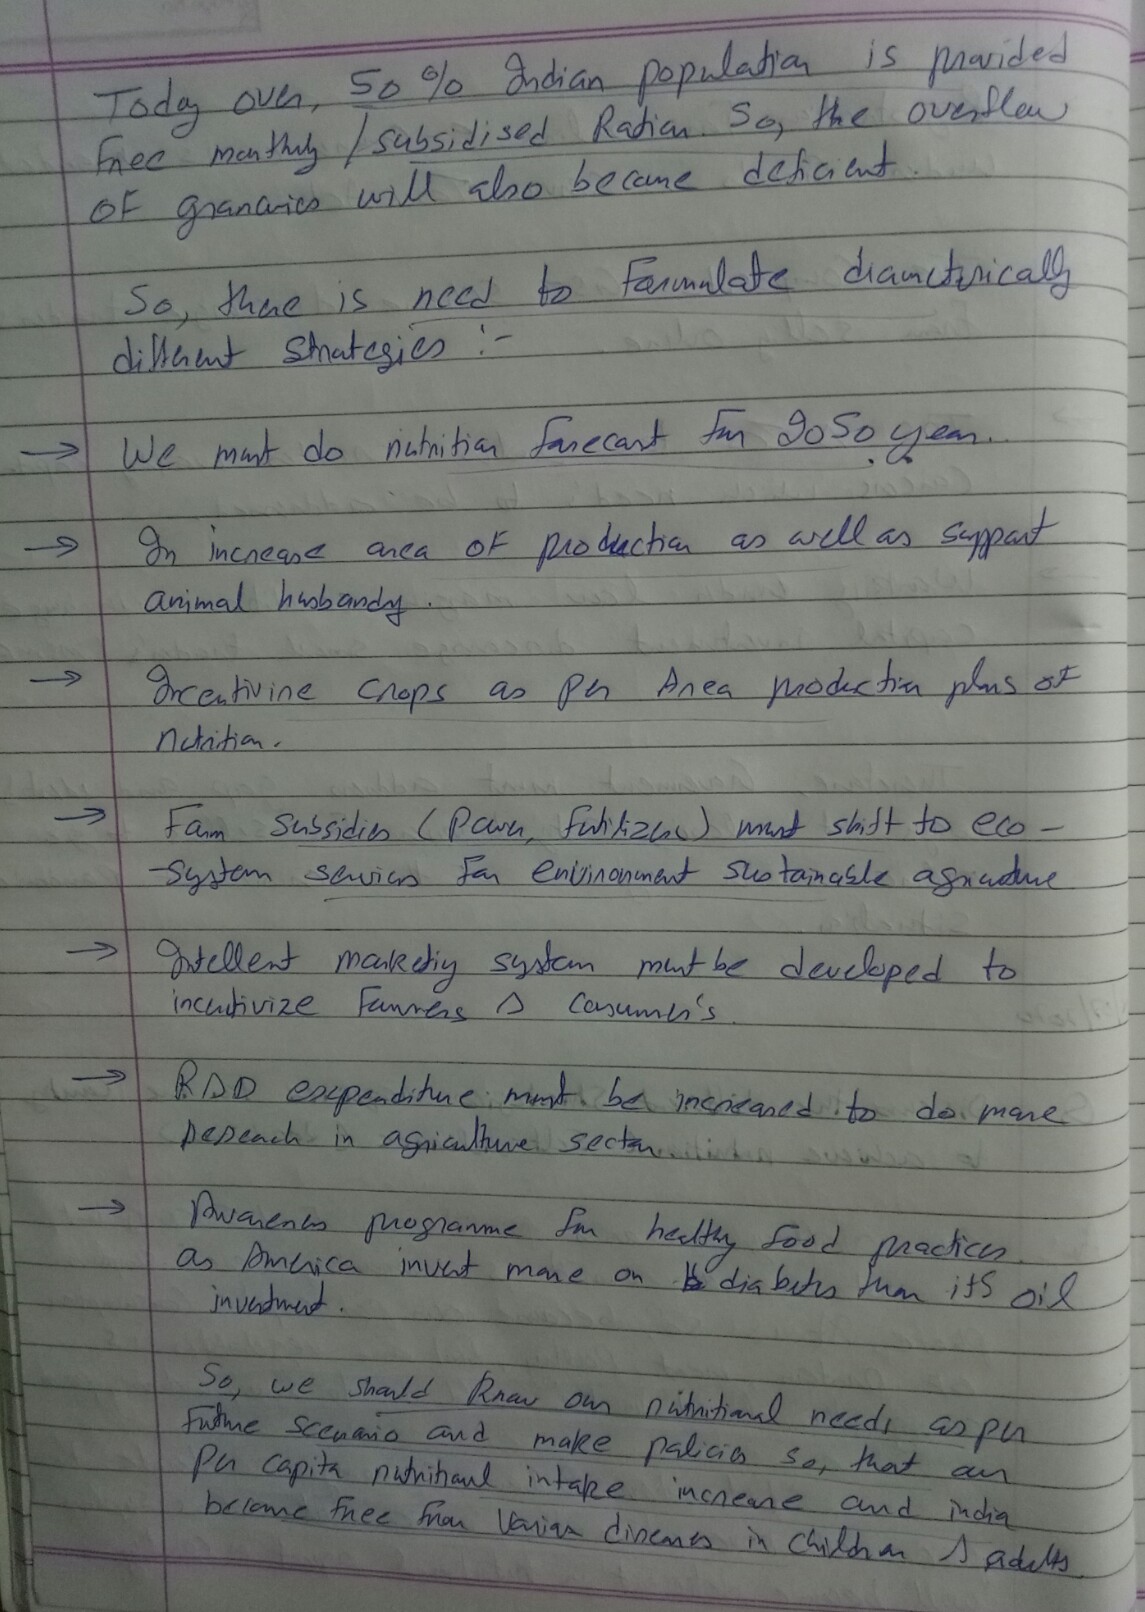 Today over, 50% Indian population is provided
free monthly / subsidised Ration. So, the overflow
of granaries will also become deficient.
So, there is need to Formulate diametrically
different strategies :-
→ We must do nutrition forecast for 2050 year.
→ In increase area of production as well as support
animal husbandy.
→ Incentivine crops as per Area production plans of
nutrition.
→ Farm subsidies (Power, fertilizers) must shift to eco-
-system services for environment sustainable agriculture
→ Intellent marketing system must be developed to
incentivize Farmers & Consumer's.
→ R&D expenditure must be increased to do more
research in agriculture sector.
→ Awareness programme for healthy food practices.
as America invest more on diabetes than its oil
investment.
So, we should know our nutritional needs as per
future scenario and make policies so, that our
per capita nutritional intake increase and india
become free from various diseases in children & adults.